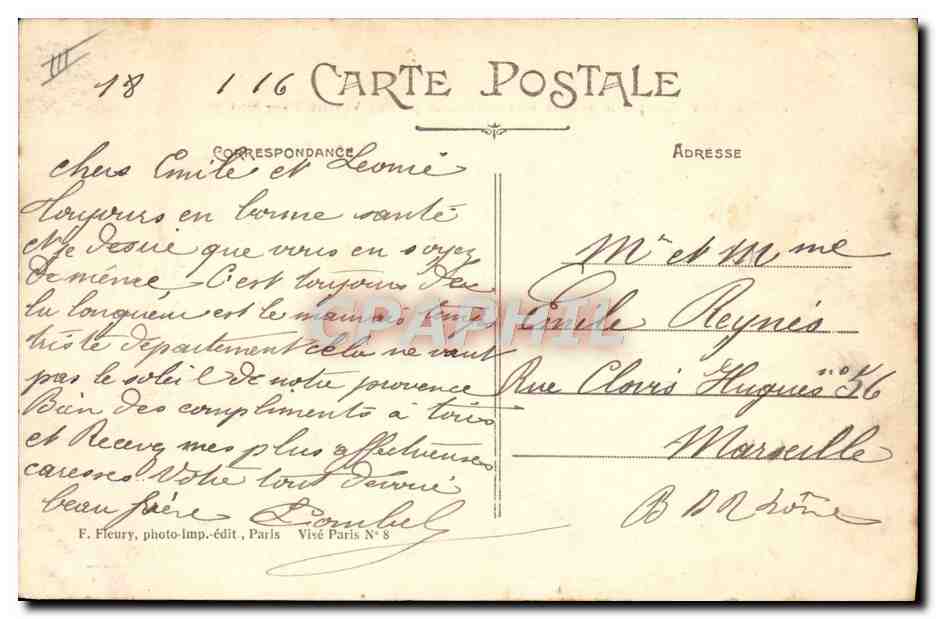 III
18 1 16 CARTE POSTALE
CORRESPONDANCE
ADRESSE
chers Emile et Leonie
toujours en bonne santé
et je desire que vous en soyez
de même. C'est toujours de
la longueur et le mauvais temps
triste departement cela ne vaut
pas le soleil de notre provence
Bien des compliments à tous
et Recevez mes plus affectueuses
caresses Votre tout devoué
beau frère
Mr et Mme
Emile Reynés
Rue Clovis Hugues no 56
Marseille
B D R hône
CPAPHIL
F. Fleury, photo-imp.-édit, Paris Visé Paris N° 8